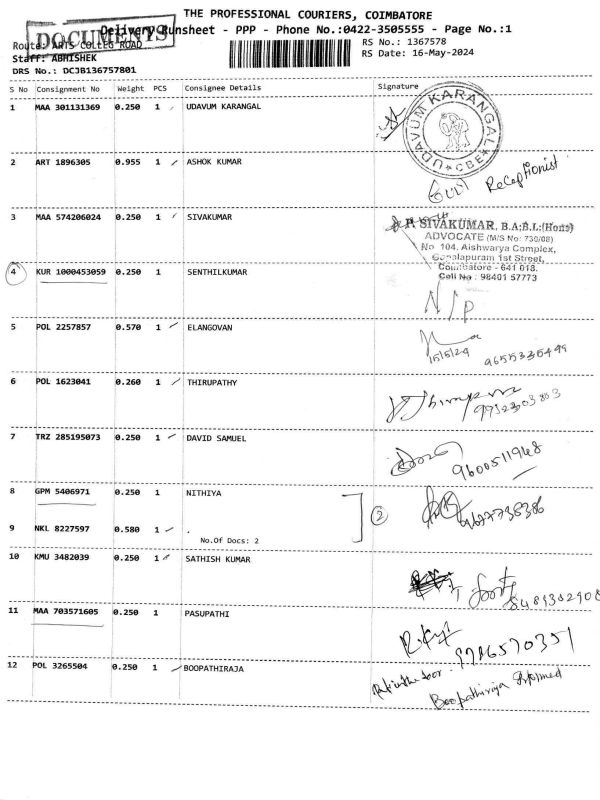 THE PROFESSIONAL COURIERS, COIMBATORE
Delivery Runsheet - PPP - Phone No.:0422-3505555 - Page No.:1
DOCUMENTS
Route: ARTS COLLEG ROAD
RS No.: 1367578
Staff: ABHISHEK
RS Date: 16-May-2024
DRS No.: DCJB136757801
S No Consignment No Weight PCS Consignee Details Signature
1 MAA 301131369 0.250 1 UDAVUM KARANGAL
UDAVUM KARANGAL * CBE *
2 ART 1896305 0.955 1 ASHOK KUMAR
Receptionist
3 MAA 574206024 0.250 1 SIVAKUMAR
SIVAKUMAR, B.A;B.L;(Hons)
ADVOCATE (M/S No: 730/08)
No 104, Aishwarya Complex,
Gopalapuram 1st Street,
Coimbatore - 641 018.
Cell No : 98401 57773
4 KUR 1000453059 0.250 1 SENTHILKUMAR
N/P
5 POL 2257857 0.570 1 ELANGOVAN
15/5/24 9655335499
6 POL 1623041 0.260 1 THIRUPATHY
7 TRZ 285195073 0.250 1 DAVID SAMUEL
9600511948
8 GPM 5406971 0.250 1 NITHIYA
2
9 NKL 8227597 0.580 1 .
No.Of Docs: 2
10 KMU 3482039 0.250 1 SATHISH KUMAR
11 MAA 703571605 0.250 1 PASUPATHI
12 POL 3265504 0.250 1 BOOPATHIRAJA
Boopathiraja Informed